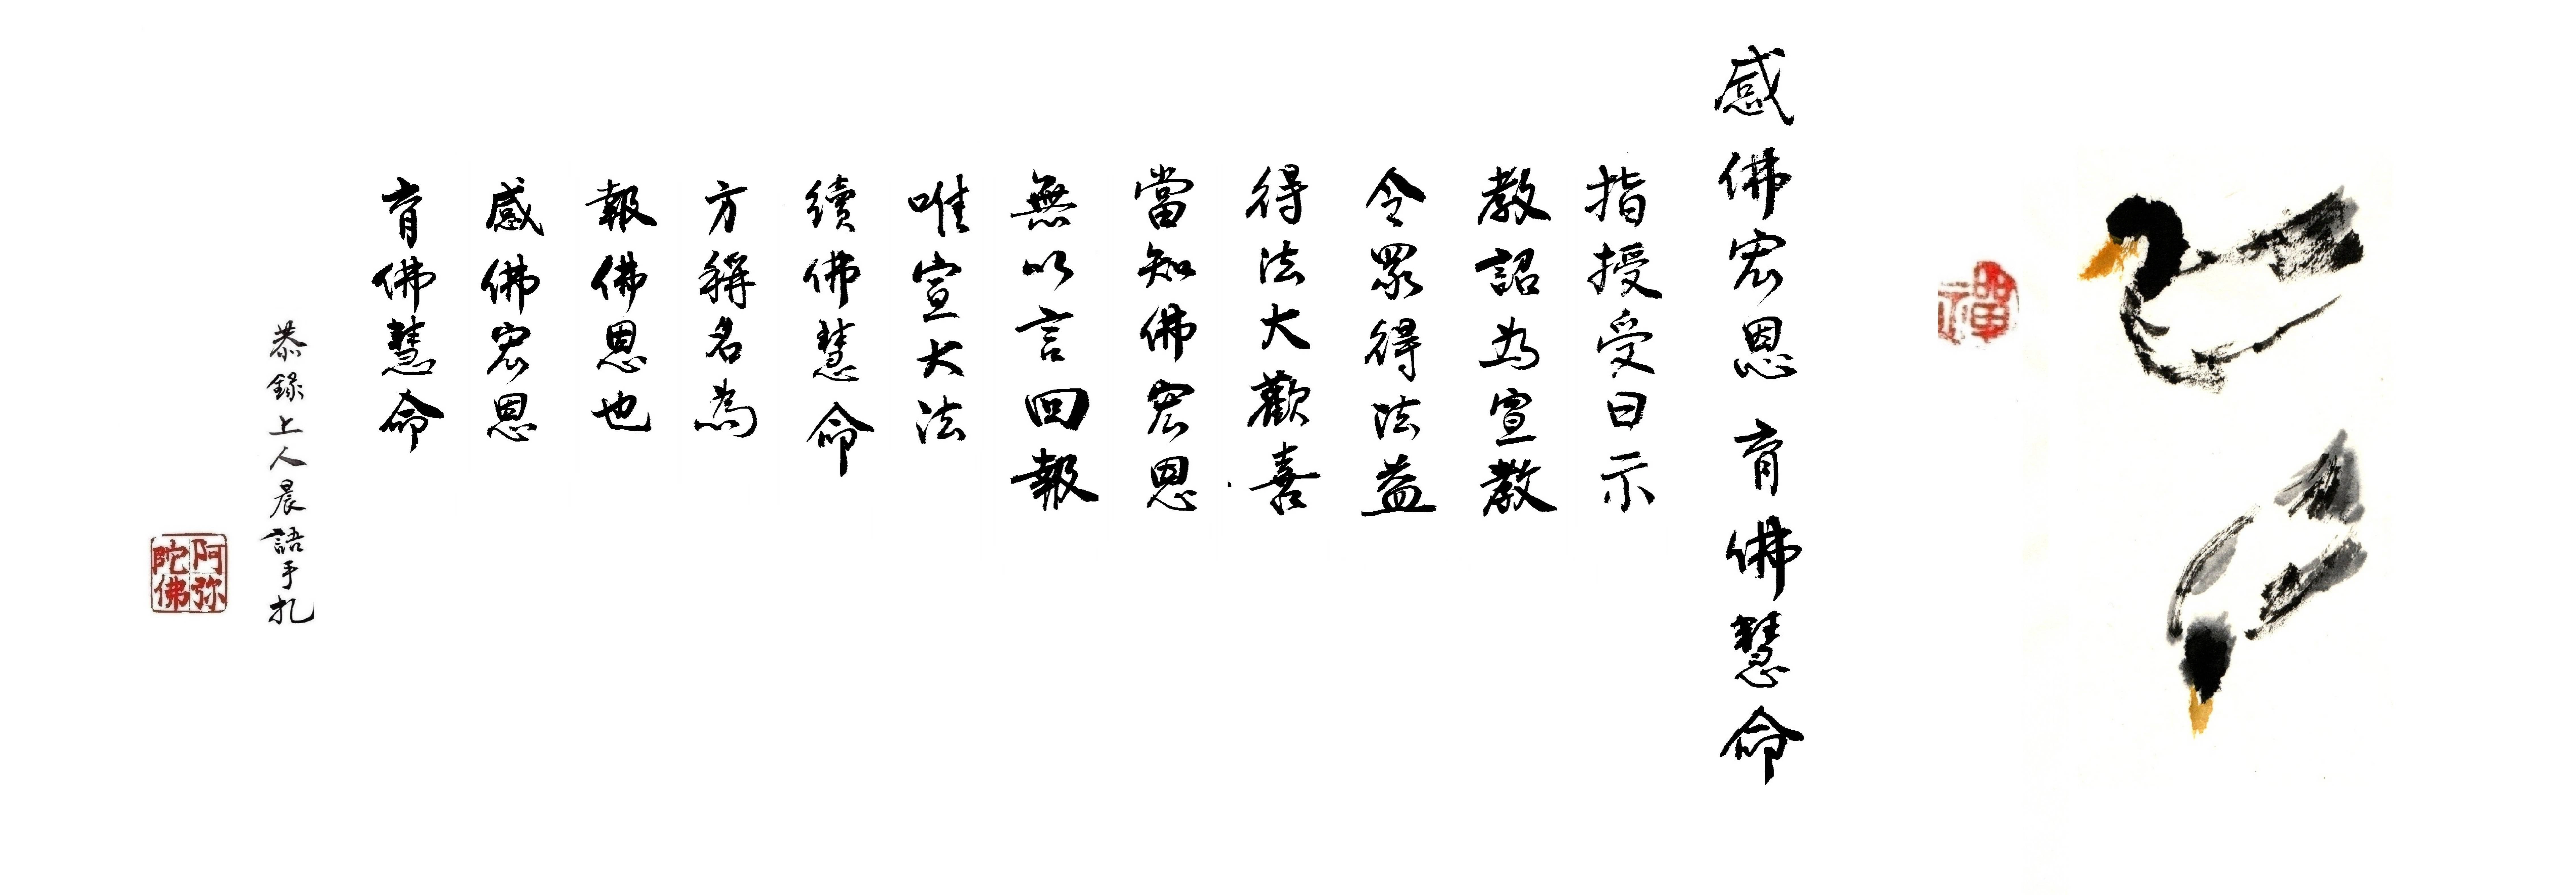 禪
感佛宏恩 育佛慧命
指授受曰示
教詔為宣教
令眾得法益
得法大歡喜
當知佛宏恩
無以言回報
唯宣大法
續佛慧命
方稱名為
報佛恩也
感佛宏恩
育佛慧命
恭錄上人晨語手札
阿弥陀佛